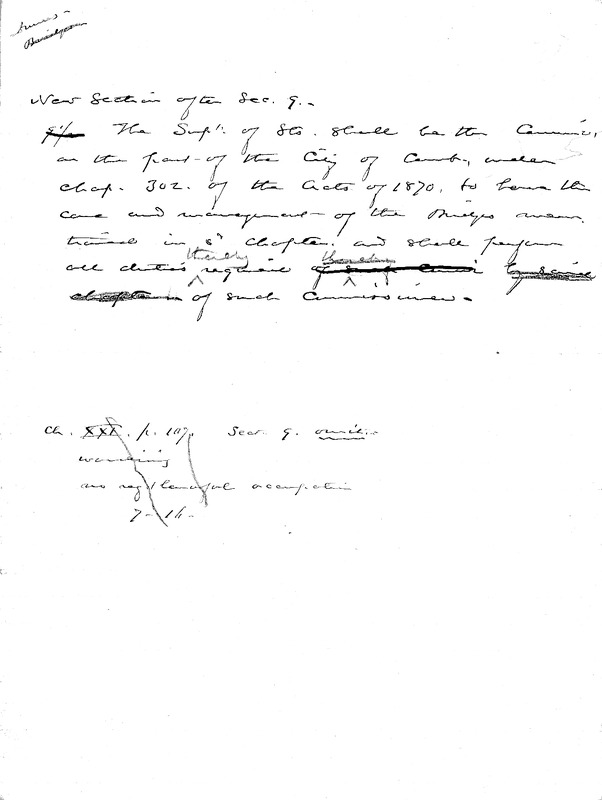 New Section after Sec. 9.-
The Supt. of Sts. shall be the Commissr.
on the part of the City of Camb., under
chap. 302. of the Acts of 1870, to have the
care and management of the Bridges men-
tioned in sd chapter. and shall perform
all duties thereby required
of such Commissioner.
Ch. XXI. p. 107. Sec. 9. omit.-
wandering
no regular lawful occupation
7 - 16 -